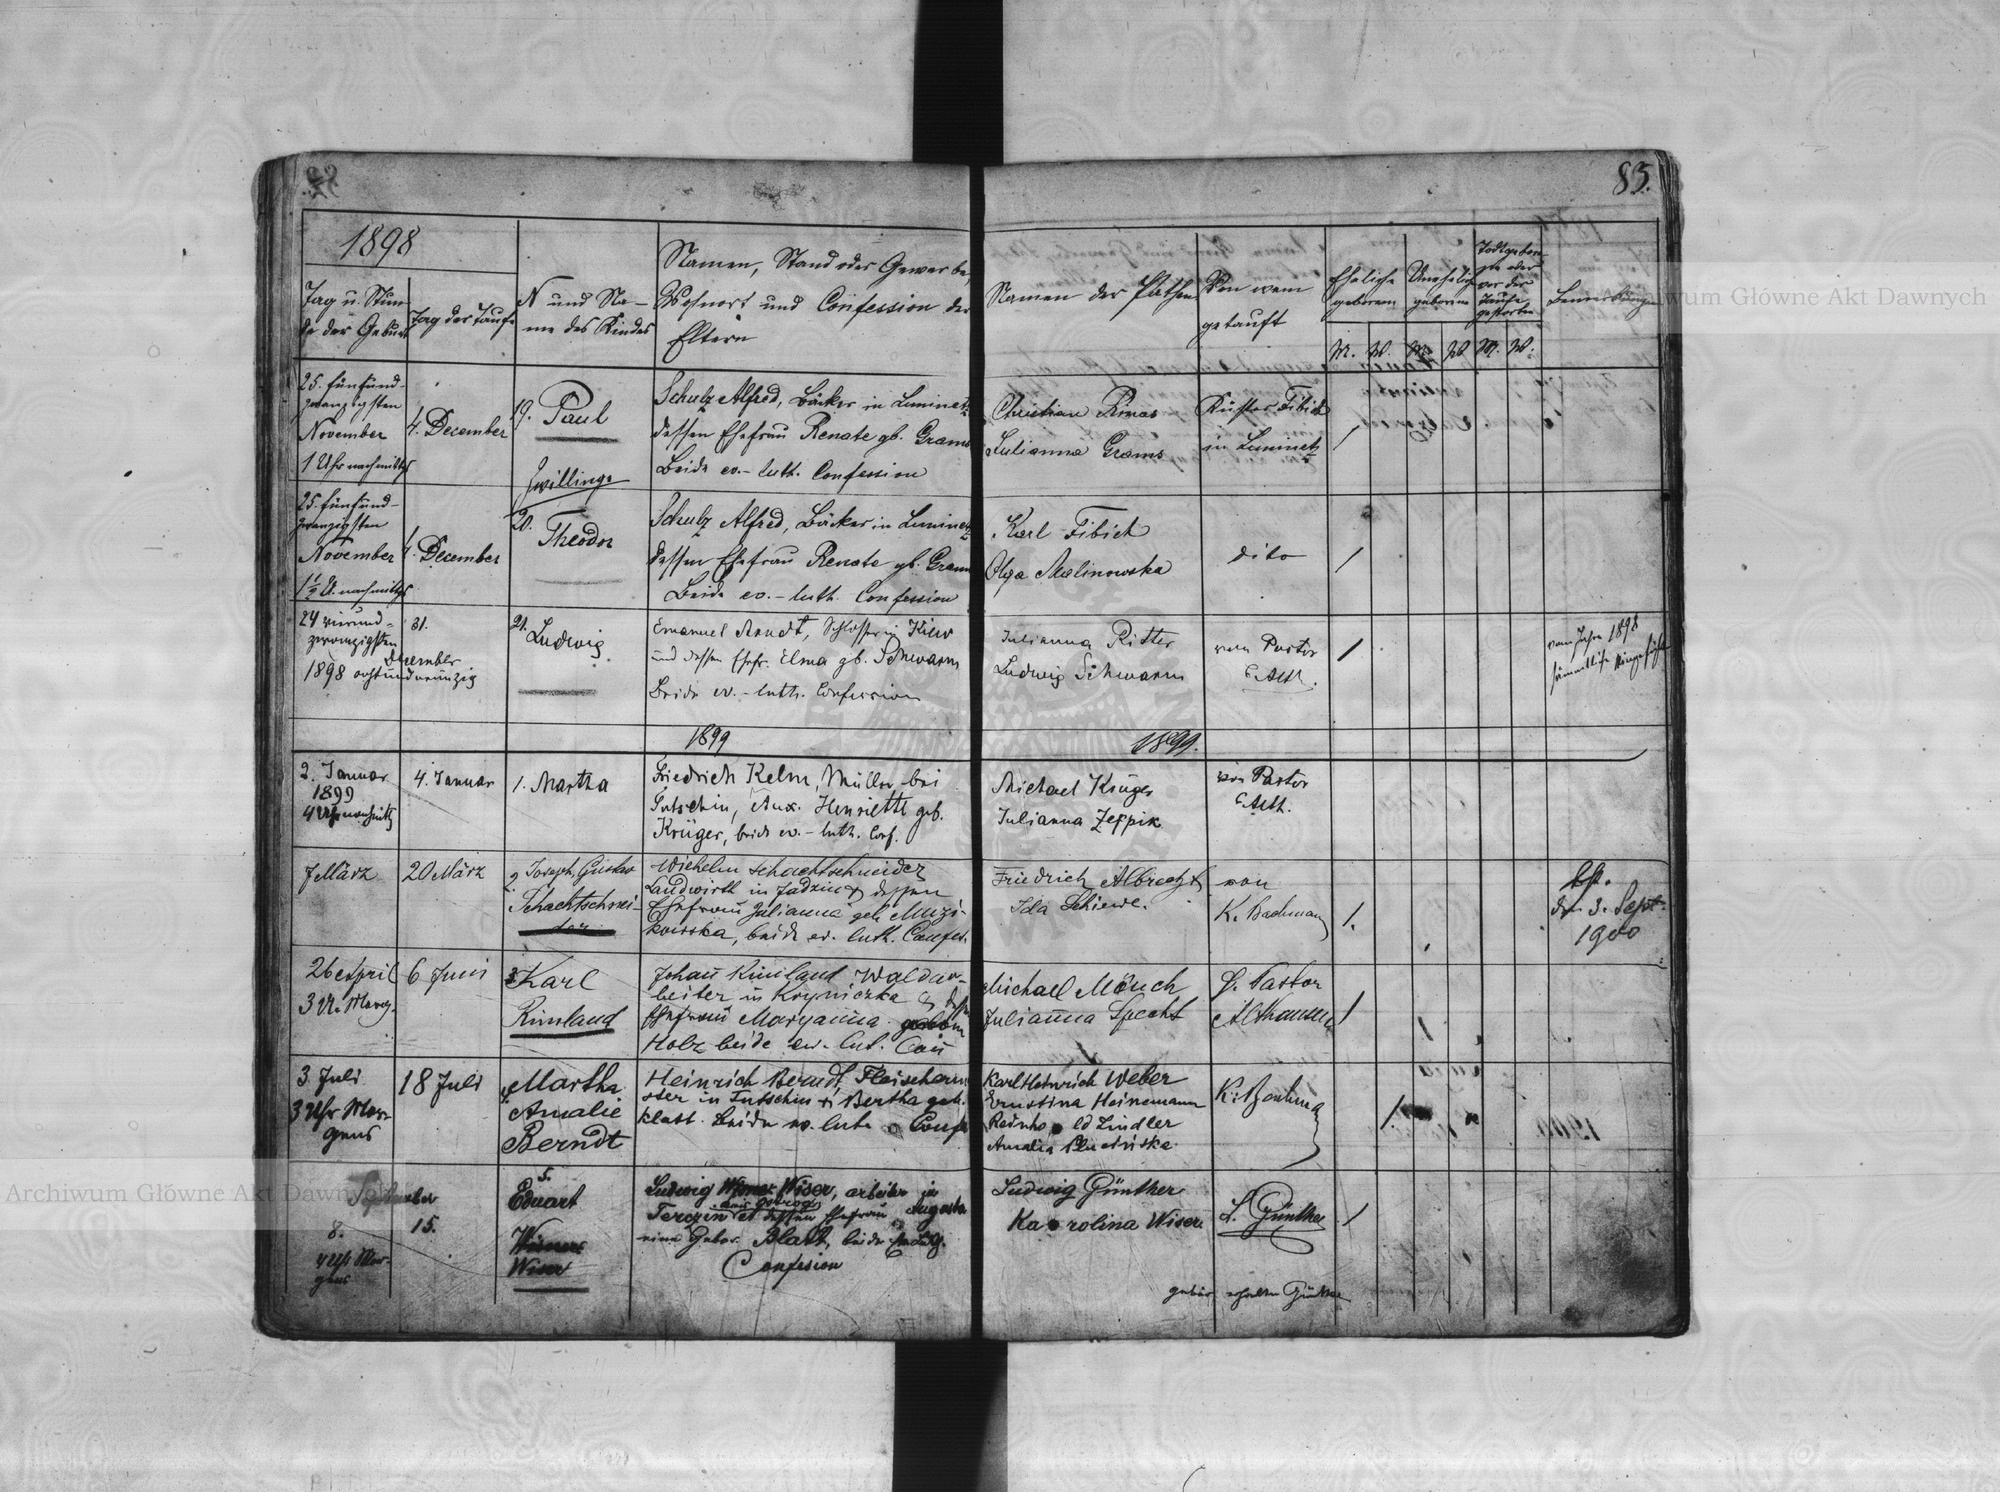 83.
1898
Tag u. Stun-
de der Geburt
Tag der Taufe
N und Na-
me des Kindes
Namen, Stand oder Gewerbe,
Wohnort und Confession der
Eltern
Namen der Pathen
Von wem
getauft
Eheliche
geboren
Unehelich
geboren
Todtgebore-
ne oder
vor der
Taufe
gestorben
Bemerkungen
M. W. M. W. M. W.
25. fünfund-
zwanzigsten
November
1 Uhr nachmittgs
4. December
19. Paul
Zwillinge
Schulz Alfred, Bäcker in Luminetz
dessen Ehefrau Renate gb. Grams
Beide ev.-luth. Confession
Christian Primas
Julianna Grams
Küster Fibich
in Luminetz
1
25. fünfund-
zwanzigsten
November
1½ U. nachmittgs
4. December
20.
Theodor
Schulz Alfred, Bäcker in Luminetz
dessen Ehefrau Renate gb. Grams
Beide ev.-luth. Confession
Karl Fibich
Olga Malinowska
dito
1
24 vierund-
zwanzigsten
December
1898 achtundneunzig
31.
21. Ludwig
Emanuel Arndt, Schlosser in Kiew
und dessen Ehefr. Elma gb. Schwarm
Beide ev.-luth. Confession
Julianna Ritter
Ludwig Schwarm
vom Pastor
1
vom Jahre 1898
sämmtliche
1899
1899.
2. Januar
1899
4 Uhr nachmittg
4. Januar
1. Martha
Friedrich Kelm, Müller bei
Tutschin, Aux. Henriette geb.
Krüger, beide ev.-luth. Conf.
Michael Krüger
Julianna Zeppik
von Pastor
7 März
20 März
2. Joseph, Gustav
Schachtschnei-
der
Wilhelm Schachtschneider
Landwirth in & dessen
Ehefrau Julianna geb Muzi-
kowska, beide ev. luth. Confes.
Friedrich Albrecht
Ida Schiewe.
von
K. Bachmann
1.
den 3. Sept.
1900
26 April
3 U. Morg.
6 Juni
3 Karl
Rimland
Johan Rimland Waldar-
beiter in Kryniczka & dessen
Ehefrau Maryanna geborn
Holz beide ev. lut. Con
Michael Mönch
Julianna Specht
P. Pastor
Althausen
1
3 Juli
3 Uhr Mor-
gens
18 Juli
4. Martha
Amalie
Berndt
Heinrich Berndt, Fleischerm
ster in Tutschin & Bertha geb.
Klatt. Beide ev. luth. Conf
Karl Heinrich Weber
Ernstina Heinemann
Reinhold Lindler
Amalia
K. Bachmann
1.
September
8.
4 Uhr Mor-
gens
15.
5.
Eduart
Wiser
Ludwig Wiser, arbeiter in
Terezin et dessen Ehefrau Augusta
eine Gebor. Blatt, beide
Confesion
Ludwig Günther
Karolina Wiser
L. Günther
1
erhalten Günther
Archiwum Główne Akt Dawnych
Archiwum Główne Akt Dawnych